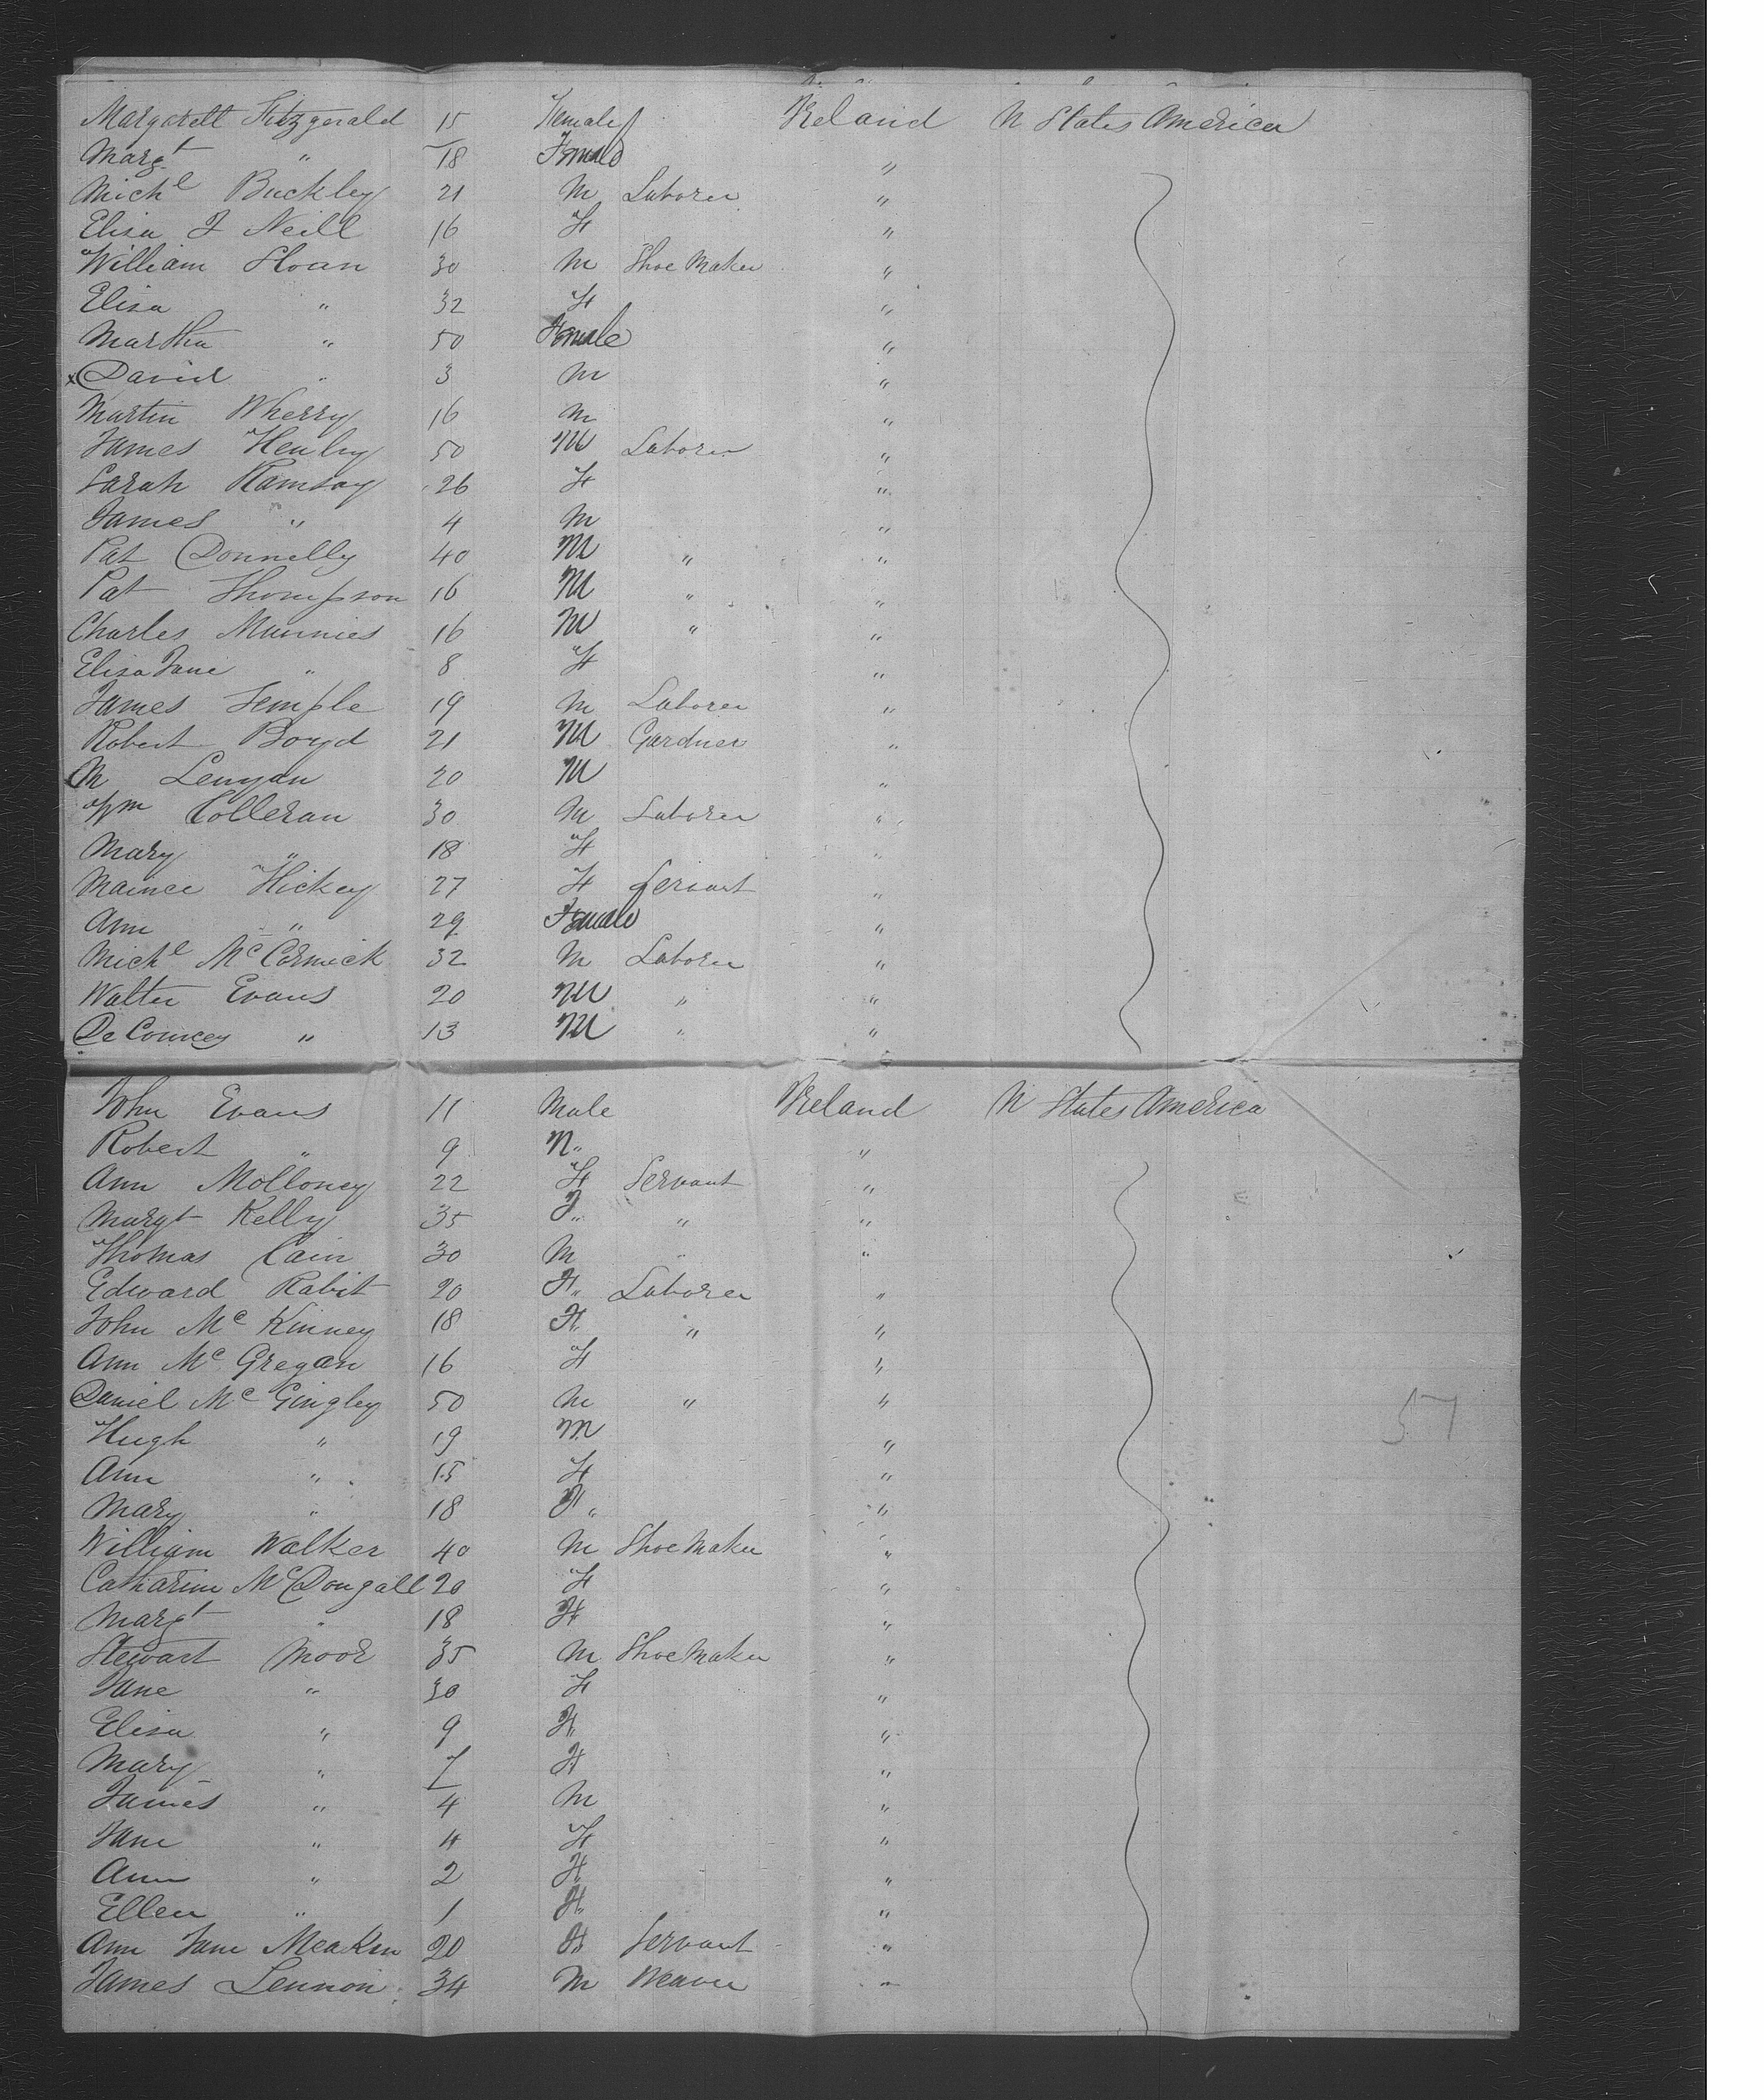 Margarett Fitzgerald 15 Female Ireland U States America
Margt " 18 Female "
Michl Buckley 21 M Laborer "
Eliza J Neill 16 F "
William Sloan 30 M Shoe Maker "
Eliza " 32 F "
Martha " 50 Female "
x David " 3 M "
Martin Wherry 16 M "
James Henley 50 M Laborer "
Sarah Ramsay 26 F "
James " 4 M "
Pat Donnelly 40 M " "
Pat Thompson 16 M " "
Charles Munnies 16 M " "
Eliza Jane " 8 F "
James Semple 19 M Laborer "
Robert Boyd 21 M Gardner "
M Lenyan 20 M "
Wm Colleran 30 M Laborer "
Mary " 18 F "
Hickey 27 F Servant "
Ann " 29 Female "
Michl McCormick 32 M Laborer "
Walter Evans 20 M " "
De Courcey " 13 M " "
John Evans 11 Male Ireland U States America
Robert " 9 M "
Ann Molloney 22 F Servant "
Margt Kelly 35 F " "
Thomas Cain 30 M " "
Edward Rabit 20 F Laborer "
John Mc Kinney 18 F " "
Ann Mc Gregan 16 F "
Daniel Mc Gingley 50 M " "
Hugh " 19 M "
Ann " 15 F "
Mary " 18 F "
William Walker 40 M Shoe Maker "
Catharine McDougall 20 F "
Margt " 18 F "
Stewart Moor 35 M Shoe Maker "
Jane " 30 F "
Eliza " 9 F "
Mary " 7 F "
James " 4 M "
Jane " 4 F "
Ann " 2 F "
Ellen " 1 F "
Ann Jane Meakin 20 F Servant "
James Lennon 34 M Weaver "
57